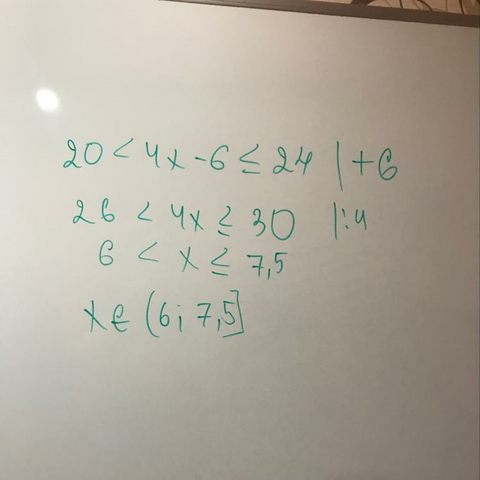 20 < 4x - 6 ≤ 24 | + 6
26 < 4x ≤ 30 | : 4
6 < x ≤ 7,5
x ∈ (6; 7,5]